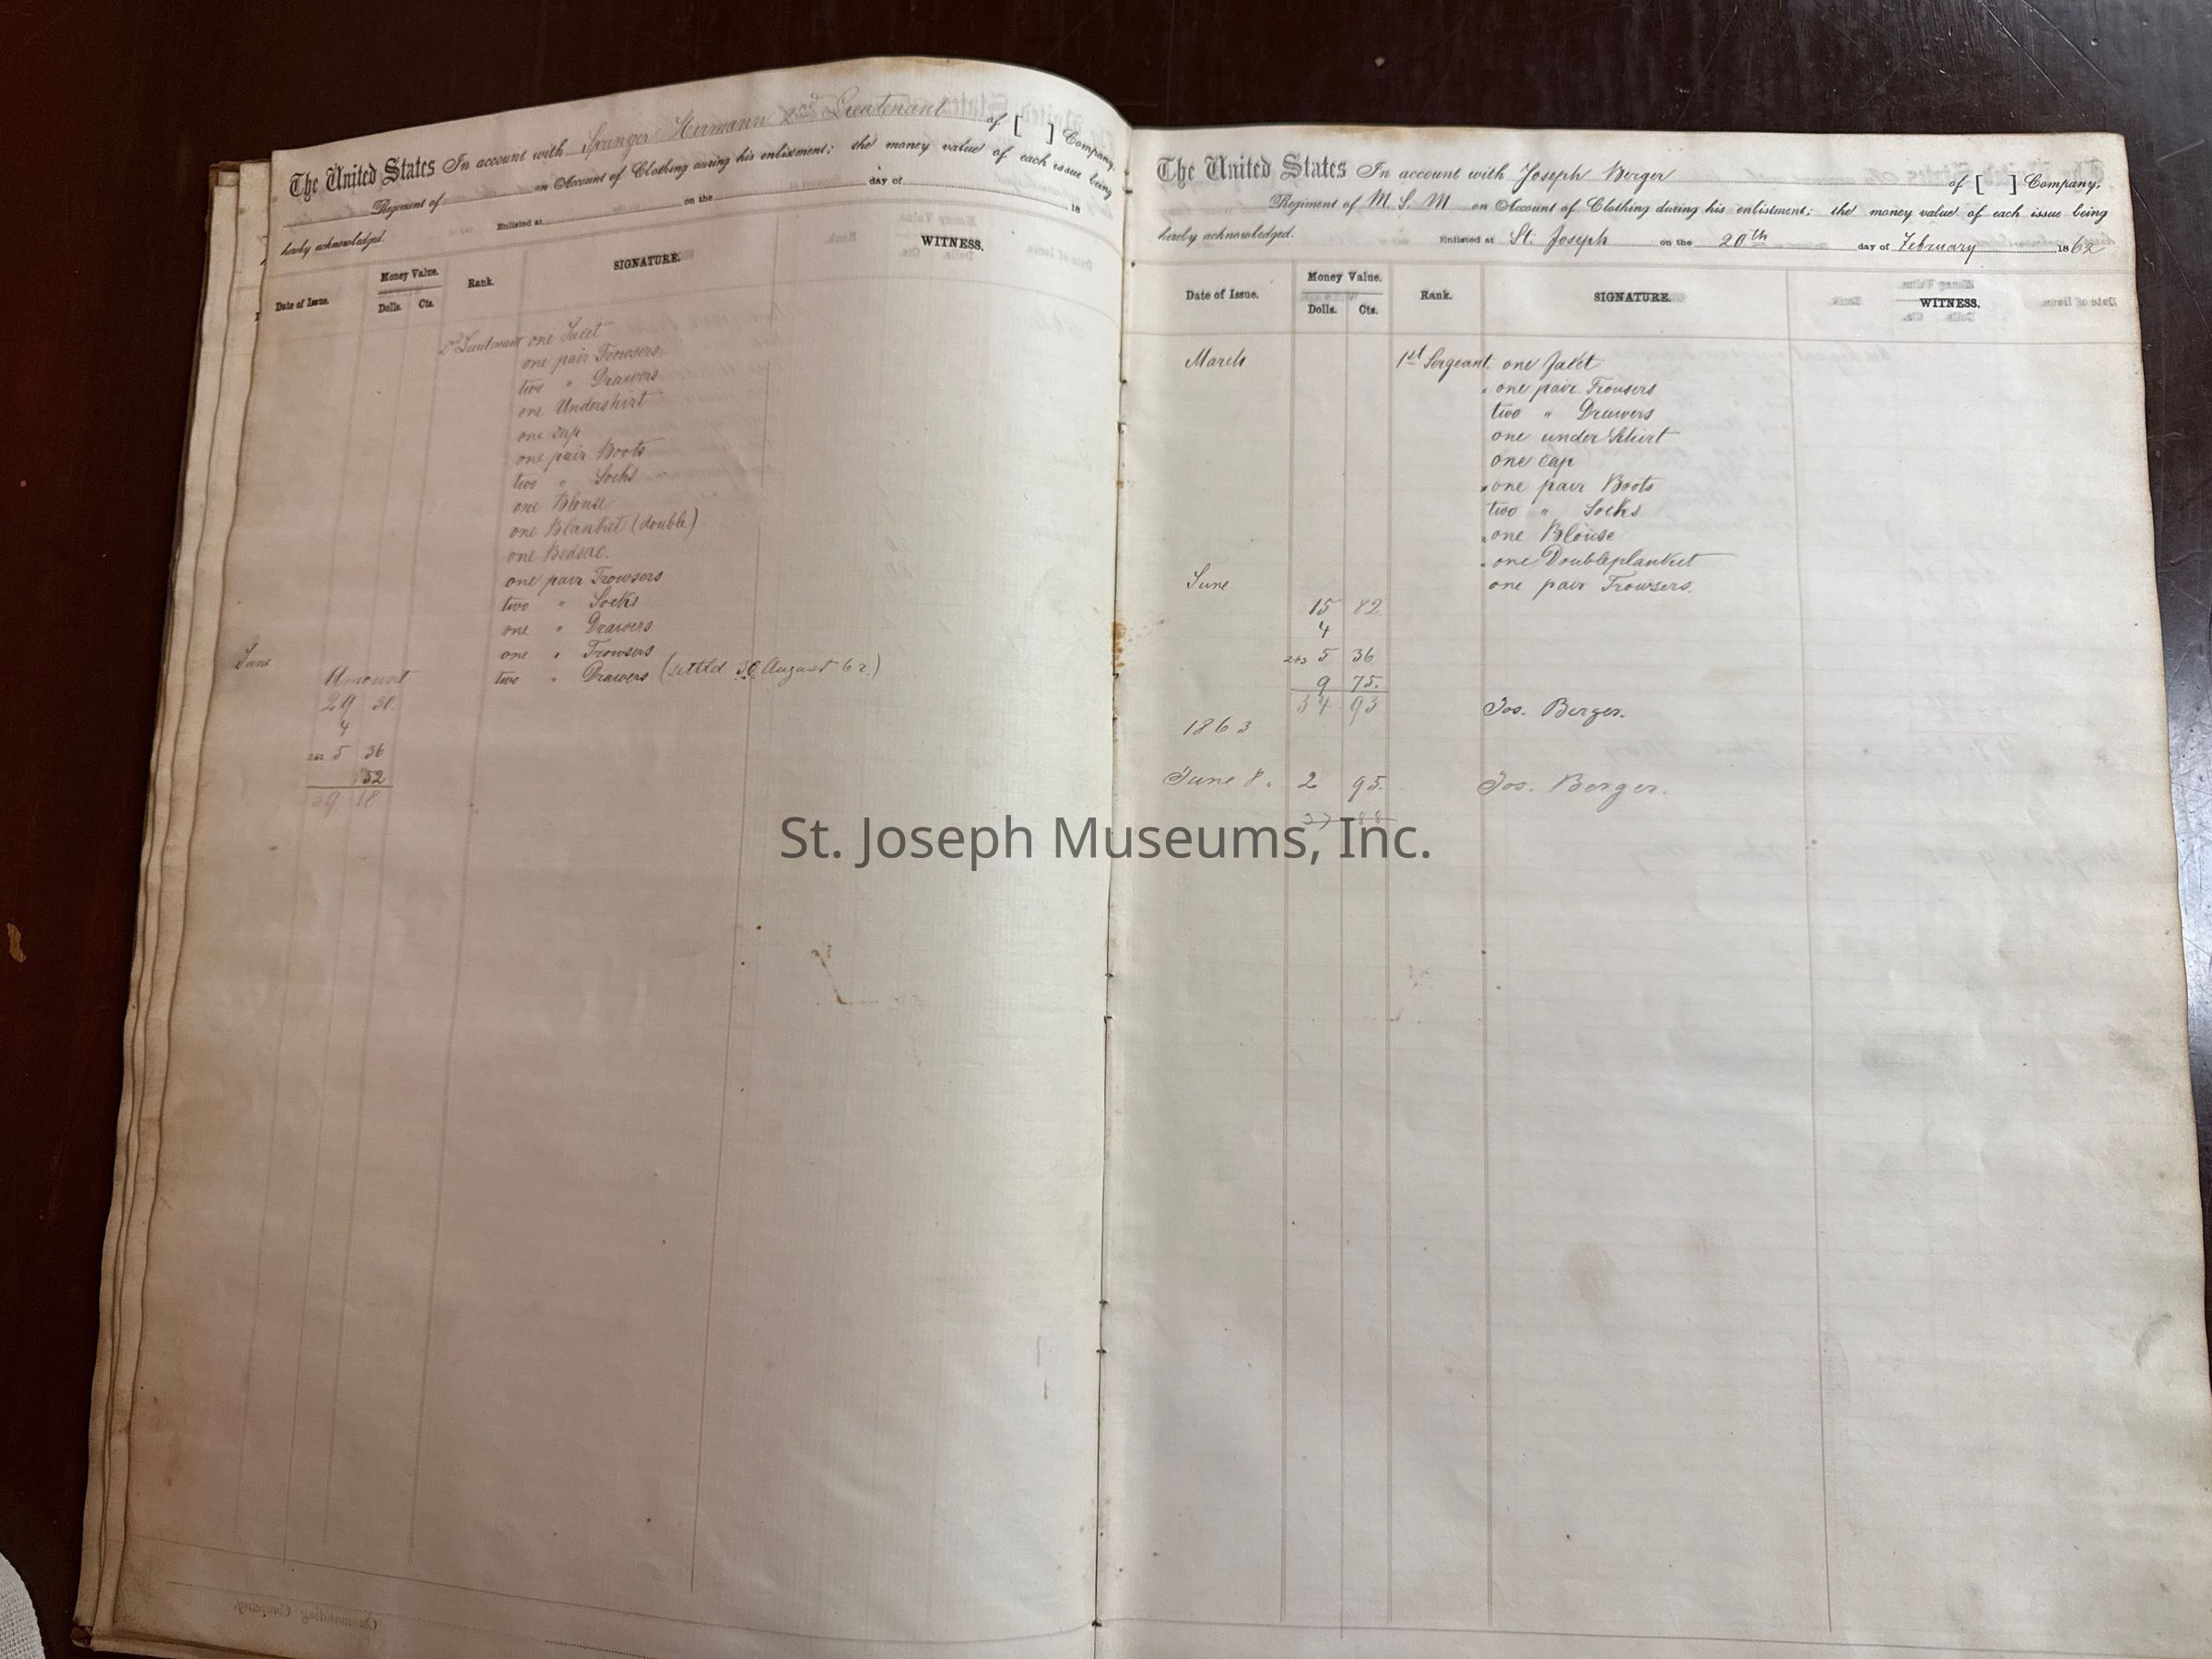 The United States In account with Springer Hermann 2nd Lieutenant of [ ] Company,
Regiment of on Account of Clothing during his enlistment; the money value of each issue being
hereby acknowledged. Enlisted at on the day of 18
Date of Issue. Money Value. Rank. SIGNATURE. WITNESS.
Dolls. Cts.
2nd Lieutenant one Jaket
one pair Trowsers
two " Drawers
one Undershirt
one cap
one pair Boots
two " Socks
one Blouse
one Blanket (double)
one Bedsac.
one pair Trowsers
two " Socks
one " Drawers
one " Trowsers
June
Amount two " Drawers (settld 30 August 62.)
29 30.
4
5 36
52
39 18
The United States In account with Joseph Berger of [ ] Company,
Regiment of M. S. M on Account of Clothing during his enlistment; the money value of each issue being
hereby acknowledged. Enlisted at St. Joseph on the 20th day of February 1862
Date of Issue. Money Value. Rank. SIGNATURE. WITNESS.
Dolls. Cts.
March 1st Sergeant. one Jaket
one pair Trousers
two " Drawers
one under Shirt
one cap
one pair Boots
two " Socks
one Blouse
one Doubleplanket
June one pair Trowsers.
15 82
4
5 36
9 75.
34 93 Jos. Berger.
1863
June 8. 2 95. Jos. Berger.
37 88
St. Joseph Museums, Inc.
Commanding Company.